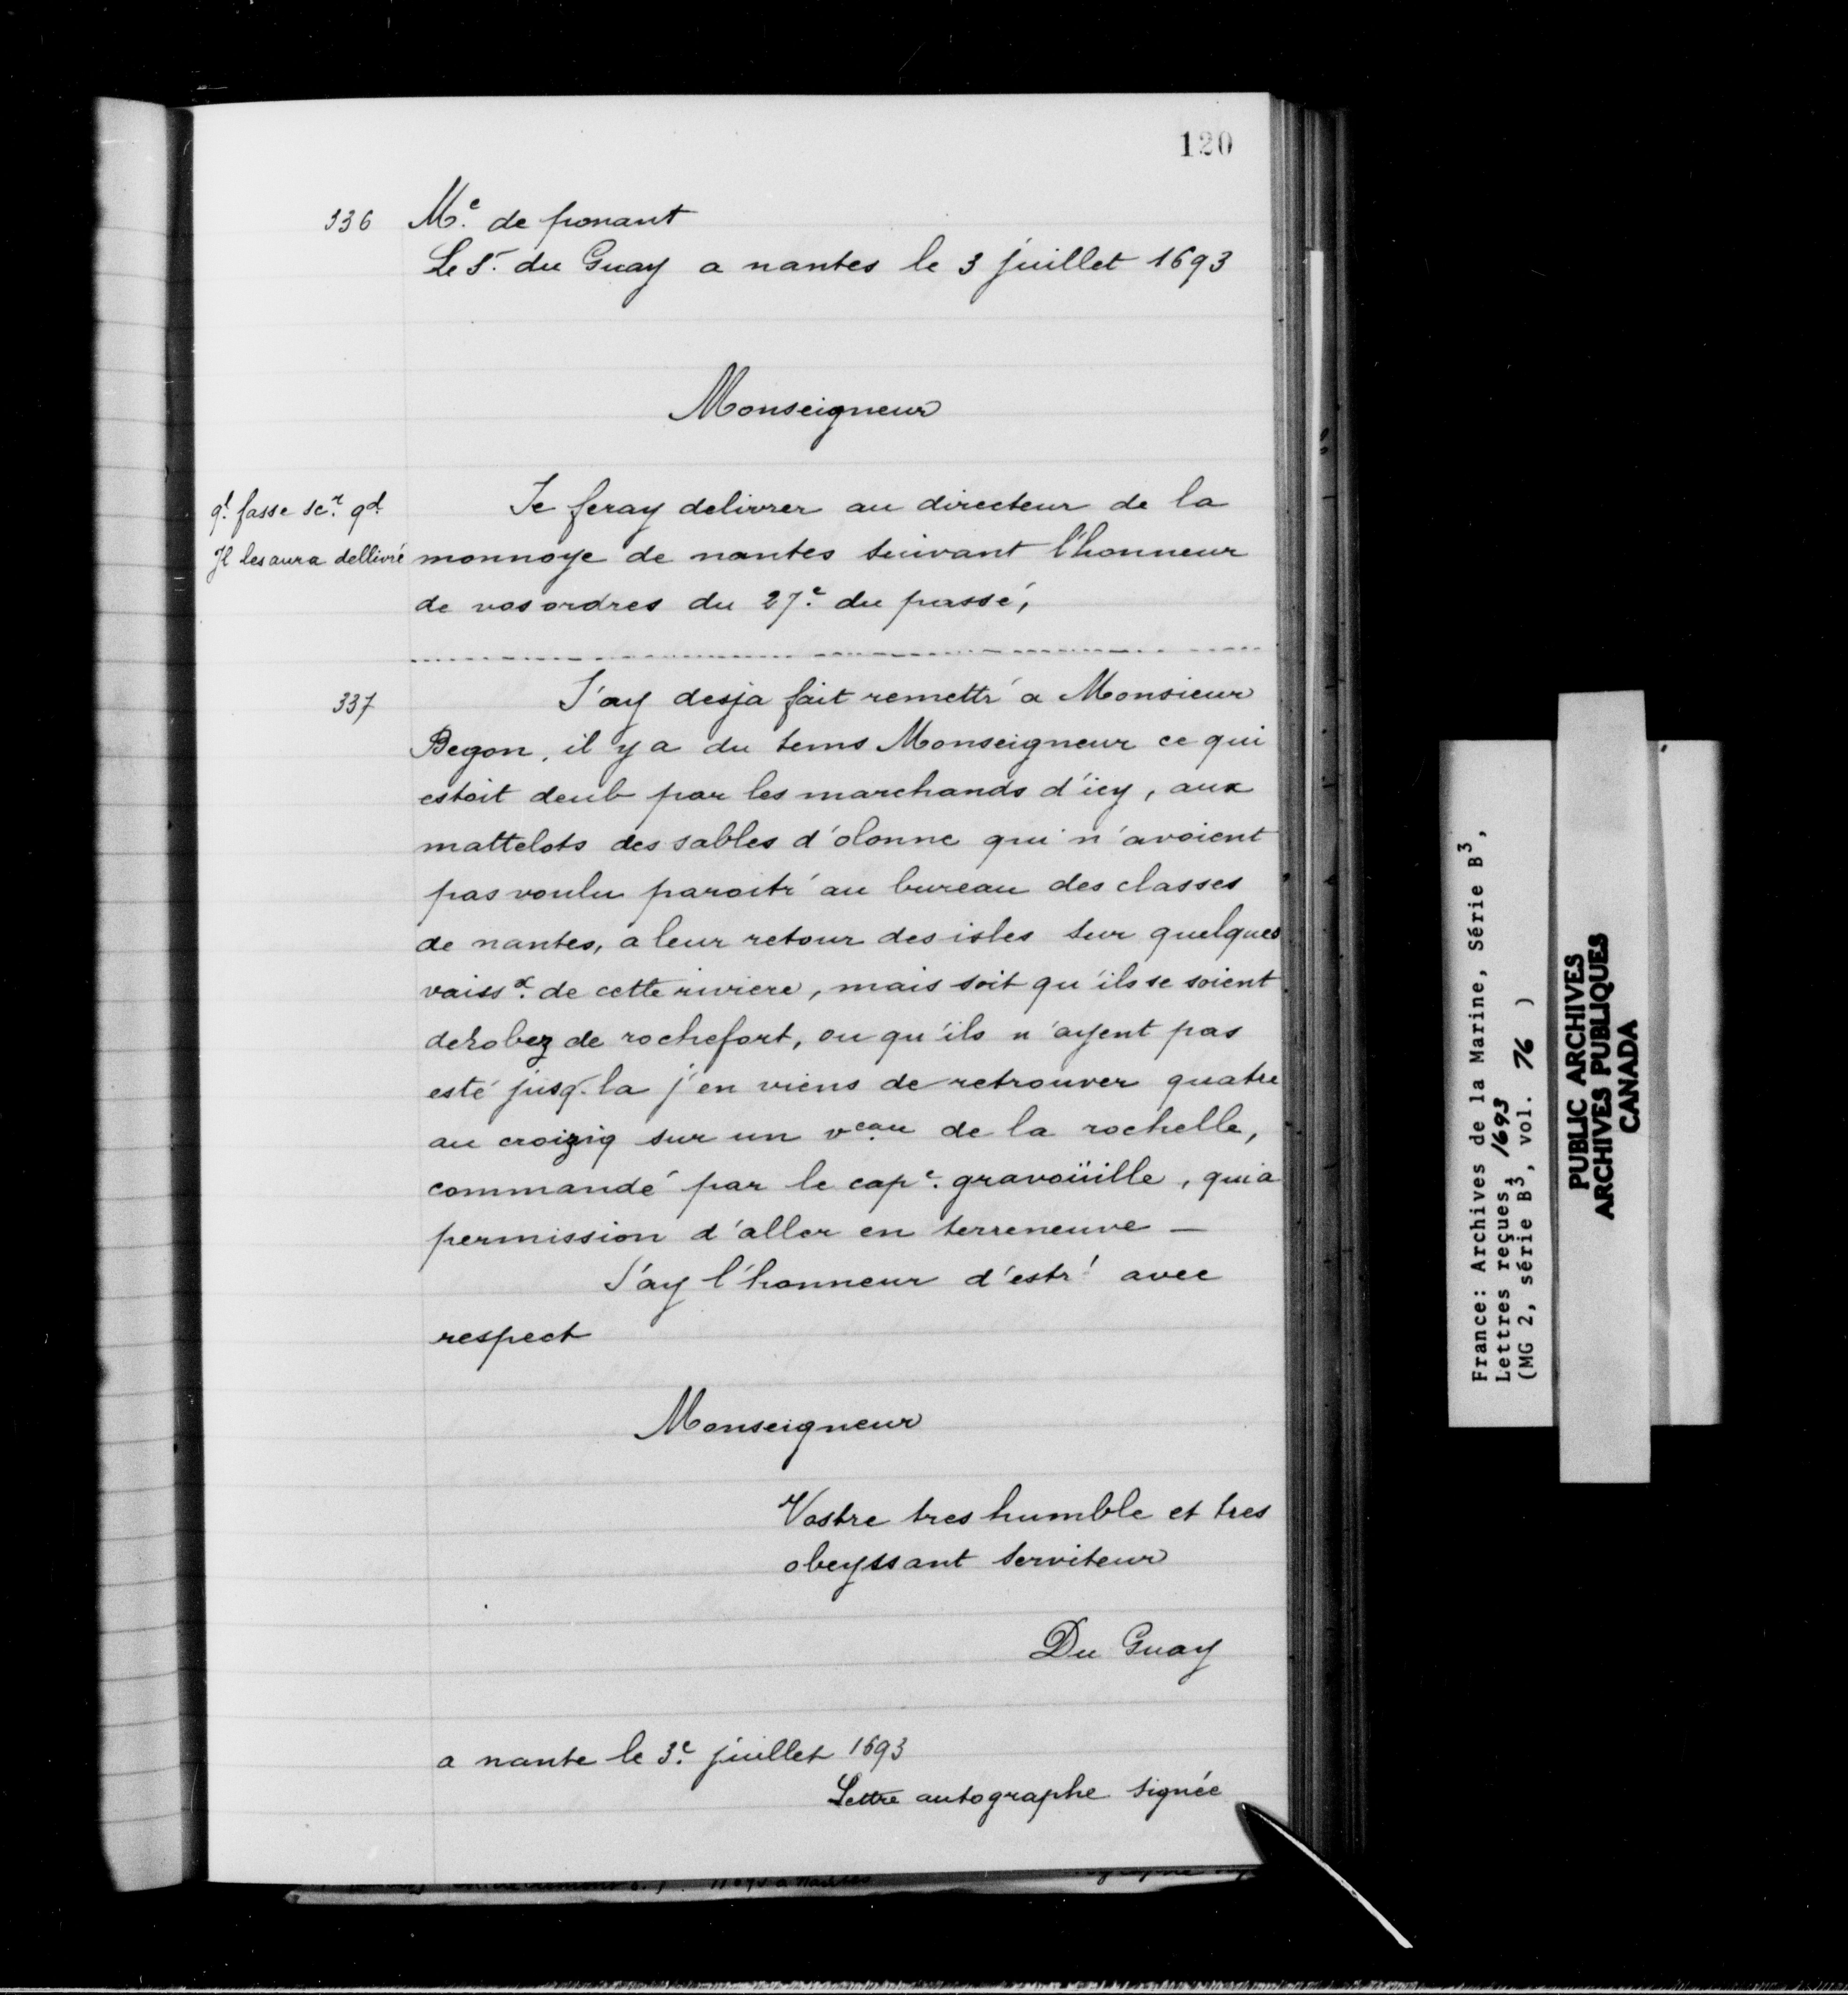 120
336 M.e de ponant
Le S.r du Guay a nantes le 3 juillet 1693
Monseigneur
q.l fasse sc.r qd.
Il les aura dellivré
Je feray delivrer au directeur de la
monnoye de nantes suivant l'honneur
de vos ordres du 27.e du passé,
337
J'ay desja fait remettr' a Monsieur
Begon, il y a du tems Monseigneur ce qui
estoit deub par les marchands d'icy, aux
mattelots des sables d'olonne qui n'avoient
pas voulu paroitr' au bureau des classes
de nantes, a leur retour des isles sur quelques
vaiss.x de cette riviere, mais soit qu'ils se soient
derobez de rochefort, ou qu'ils n'ayent pas
esté jusq. la j'en viens de retrouver quatre
au croizig sur un v.eau de la rochelle,
commandé par le cap.e gravoüille, qui a
permission d'aller en terreneuve —
J'ay l'honneur d'estr' avec
respect
Monseigneur
Vostre tres humble et tres
obeyssant serviteur
Du Guay
a nante le 3.e juillet 1693
Lettre autographe signée
France: Archives de la Marine, Série B3,
Lettres reçues, 1693
(MG 2, série B3, vol. 76 )
PUBLIC ARCHIVES
ARCHIVES PUBLIQUES
CANADA